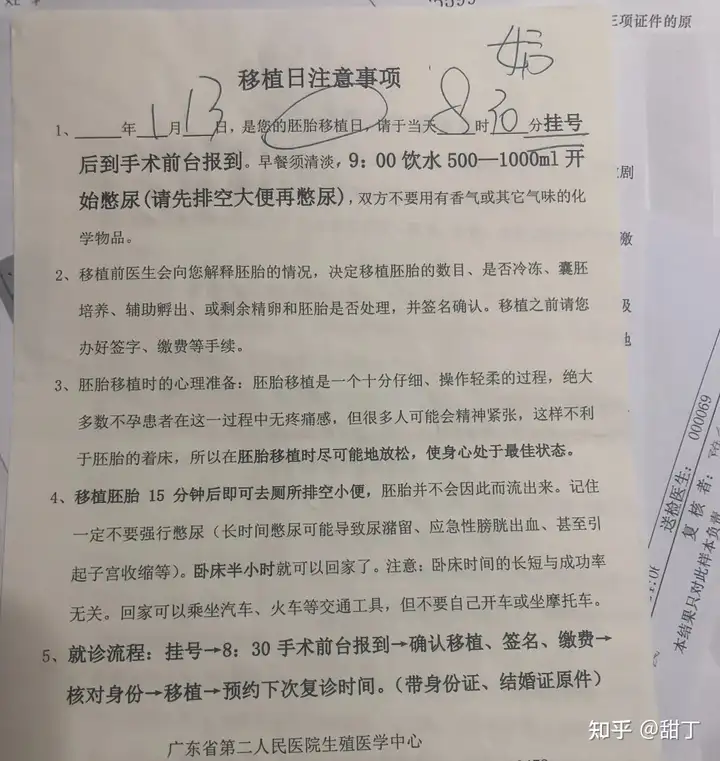 3599
三项证件的原
移植日注意事项
1、____年1月13日，是您的胚胎移植日，请于当天8时30分挂号
后到手术前台报到。早餐须清淡，9：00 饮水 500—1000ml 开
始憋尿(请先排空大便再憋尿)，双方不要用有香气或其它气味的化
学物品。
2、移植前医生会向您解释胚胎的情况，决定移植胚胎的数目、是否冷冻、囊胚
培养、辅助孵出、或剩余精卵和胚胎是否处理，并签名确认。移植之前请您
办好签字、缴费等手续。
3、胚胎移植时的心理准备：胚胎移植是一个十分仔细、操作轻柔的过程，绝大
多数不孕患者在这一过程中无疼痛感，但很多人可能会精神紧张，这样不利
于胚胎的着床，所以在胚胎移植时尽可能地放松，使身心处于最佳状态。
4、移植胚胎 15 分钟后即可去厕所排空小便，胚胎并不会因此而流出来。记住
一定不要强行憋尿（长时间憋尿可能导致尿潴留、应急性膀胱出血、甚至引
起子宫收缩等）。卧床半小时就可以回家了。注意：卧床时间的长短与成功率
无关。回家可以乘坐汽车、火车等交通工具，但不要自己开车或坐摩托车。
5、就诊流程：挂号→8：30 手术前台报到→确认移植、签名、缴费→
核对身份→移植→预约下次复诊时间。（带身份证、结婚证原件）
广东省第二人民医院生殖医学中心
剧
缴
级
地
送检医生： 000069
复 核 者：
本结果只对此样本负责
知乎 @甜丁